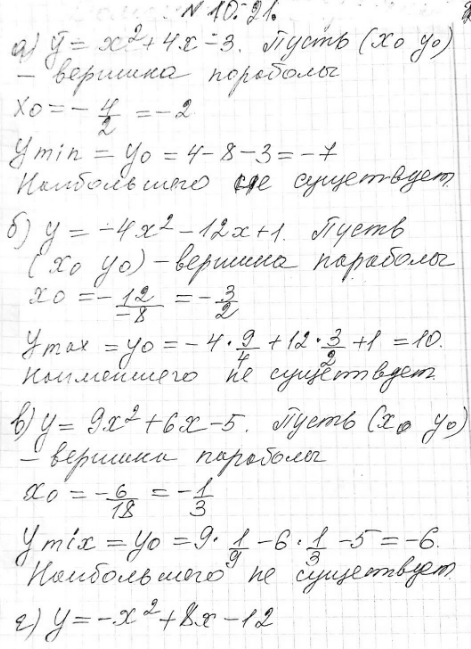 № 10.21.
а) y = x² + 4x - 3. Пусть (x₀ y₀)
- вершина параболы
x₀ = - 4/2 = -2
y min = y₀ = 4 - 8 - 3 = -7
Наибольшего не существует.
б) y = -4x² - 12x + 1. Пусть
(x₀ y₀) - вершина параболы
x₀ = - -12/-8 = - 3/2
y max = y₀ = -4 · 9/4 + 12 · 3/2 + 1 = 10.
Наименшего не существует.
в) y = 9x² + 6x - 5. Пусть (x₀ y₀)
- вершина параболы
x₀ = - 6/18 = - 1/3
y mix = y₀ = 9 · 1/9 - 6 · 1/3 - 5 = -6.
Наибольшего не существует.
г) y = -x² + 8x - 12